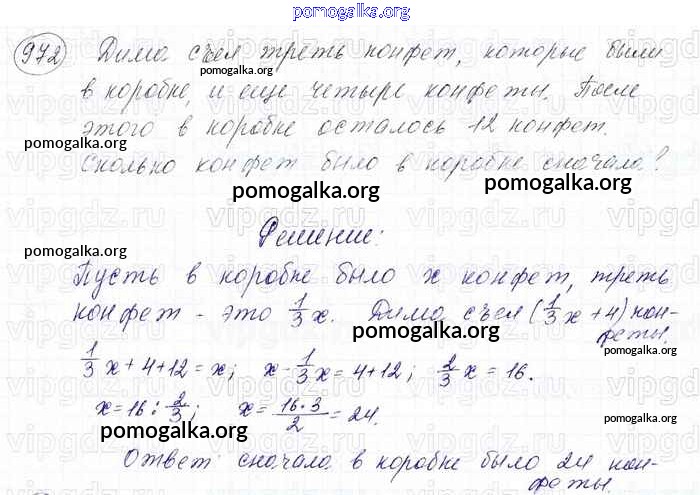 pomogalka.org
972 Дима съел треть конфет, которые были
pomogalka.org
в коробке, и еще четыре конфеты. После
этого в коробке осталось 12 конфет.
pomogalka.org
Сколько конфет было в коробке сначала?
pomogalka.org pomogalka.org
vipgdz.ru vipgdz.ru vipgdz.ru
Решение:
pomogalka.org
Пусть в коробке было x конфет, треть
конфет - это 1/3 x. Дима съел (1/3 x + 4) кон-
pomogalka.org
феты.
pomogalka.org
1/3 x + 4 + 12 = x; x - 1/3 x = 4 + 12; 2/3 x = 16.
x = 16 : 2/3; x = 16·3/2 = 24.
pomogalka.org
pomogalka.org
Ответ: сначала в коробке было 24 кон-
феты
pomogalka.org